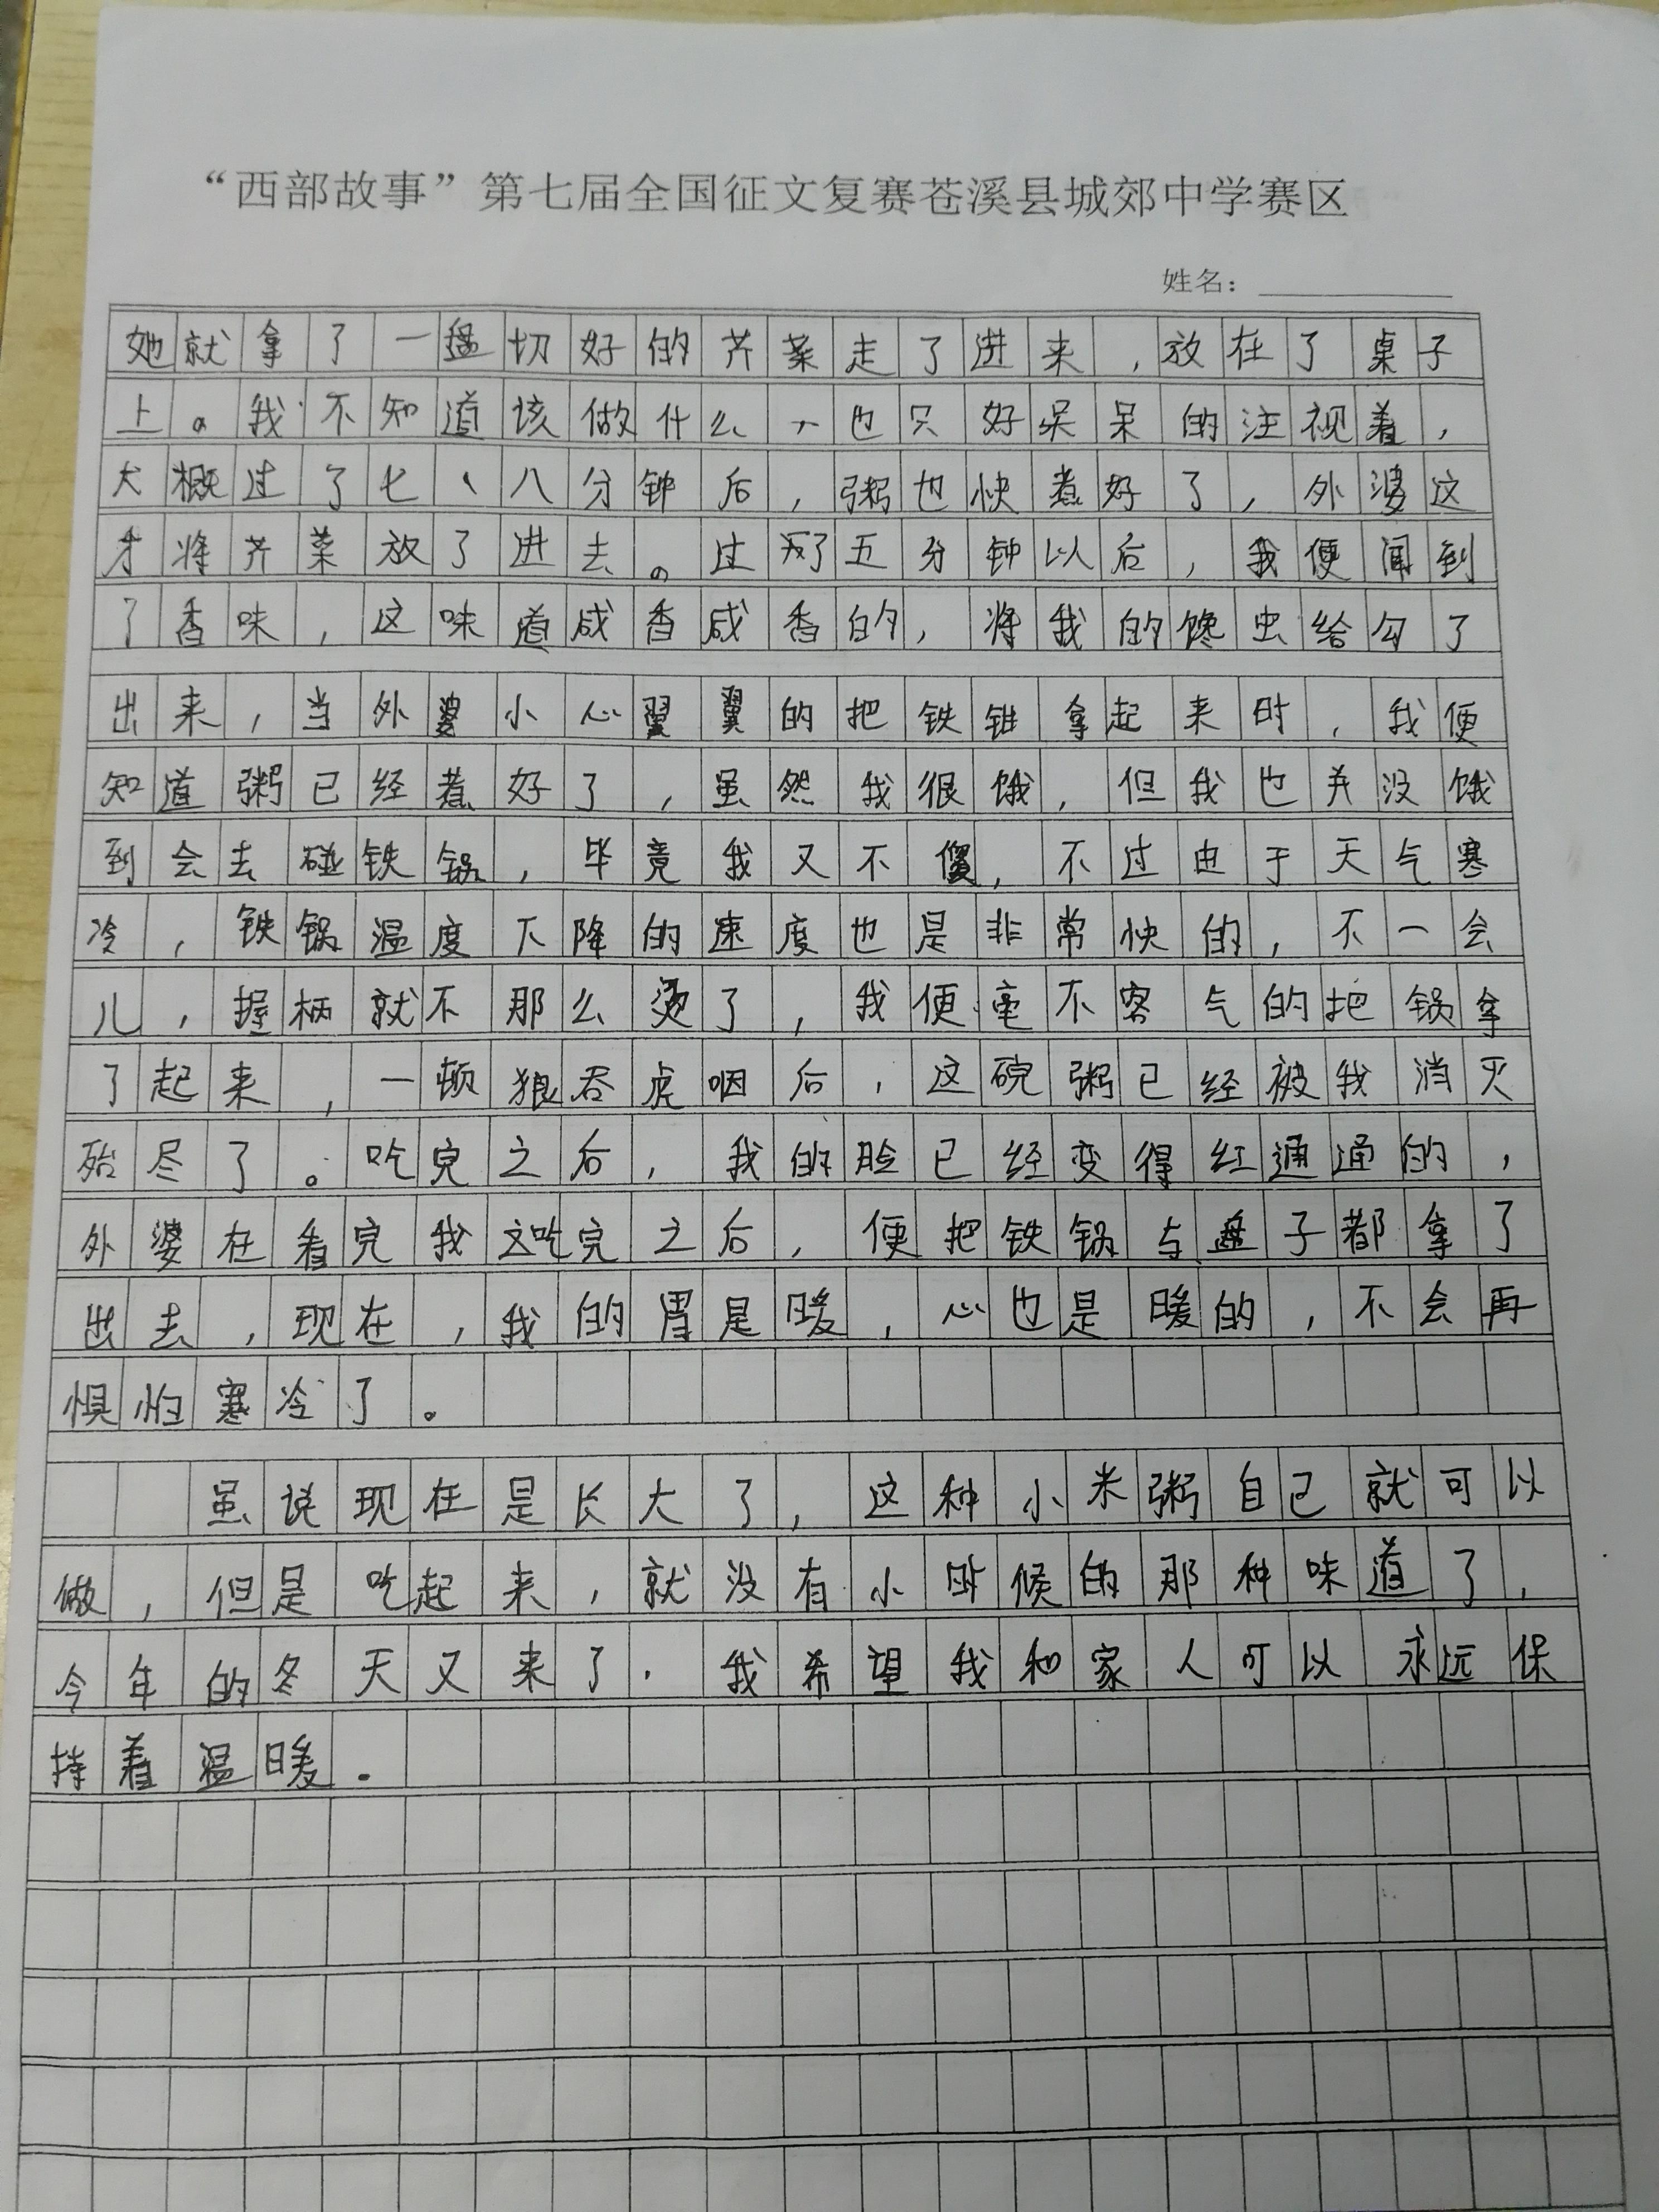 “西部故事”第七届全国征文复赛苍溪县城郊中学赛区
姓名：
她就拿了一盘切好的芹菜走了进来，放在了桌子
上。我不知道该做什么，也只好呆呆的注视着，
大概过了七、八分钟后，粥也快煮好了，外婆这
才将芹菜放了进去。过了五分钟以后，我便闻到
了香味，这味道咸香咸香的，将我的馋虫给勾了
出来，当外婆小心翼翼的把铁锅拿起来时，我便
知道粥已经煮好了，虽然我很饿，但我也并没饿
到会去碰铁锅，毕竟我又不傻，不过由于天气寒
冷，铁锅温度下降的速度也是非常快的，不一会
儿，握柄就不那么烫了，我便毫不客气的把锅拿
了起来，一顿狼吞虎咽后，这碗粥已经被我消灭
殆尽了。吃完之后，我的脸已经变得红通通的，
外婆在看完我这吃完之后，便把铁锅与盘子都拿了
出去，现在，我的胃是暖，心也是暖的，不会再
惧怕寒冷了。
虽说现在是长大了，这种小米粥自己就可以
做，但是吃起来，就没有小时候的那种味道了，
今年的冬天又来了．我希望我和家人可以永远保
持着温暖．